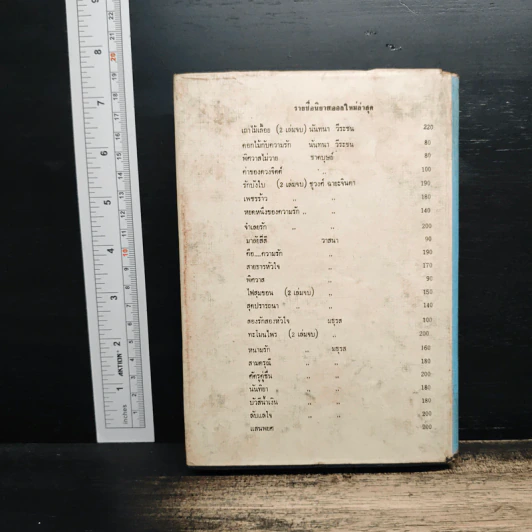 รายชื่อนิยายออกใหม่ล่าสุด
เถาไม้เลื้อย (2 เล่มจบ) นันทนา วีระชน 220
ดอกไม้กับความรัก นันทนา วีระชน 80
พิศวาสไม่วาย ชาตบุษย์ 80
ค่าของดวงจิตต์ ,, 100
รักบังใบ (2 เล่มจบ) ชูวงศ์ ฉายะจินดา 190
เพชรร้าว ,, ,, 180
หยดหนึ่งของความรัก ,, ,, 140
จำเลยรัก ,, ,, 200
มาลัยสีสี วาสนา 90
คือ....ความรัก ,, 190
สายธารหัวใจ ,, 170
พิศวาส ,, 90
ไฟสุมขอน (2 เล่มจบ) ,, 150
สุดปรารถนา ,, ,, 140
สองรักสองหัวใจ มธุรส 100
ทะโมนไพร (2 เล่มจบ) ,, 200
หนามรัก ,, มธุรส 160
สามดรุณี ,, ,, 180
ศัตรูคู่ชื่น ,, ,, 200
นันทิยา ,, ,, 180
บัวสีน้ำเงิน ,, ,, 180
ลับแลใจ ,, ,, 200
แสนพยศ ,, ,, 200
inches
AKTION
1 2 3 4 5 6 7 8 9